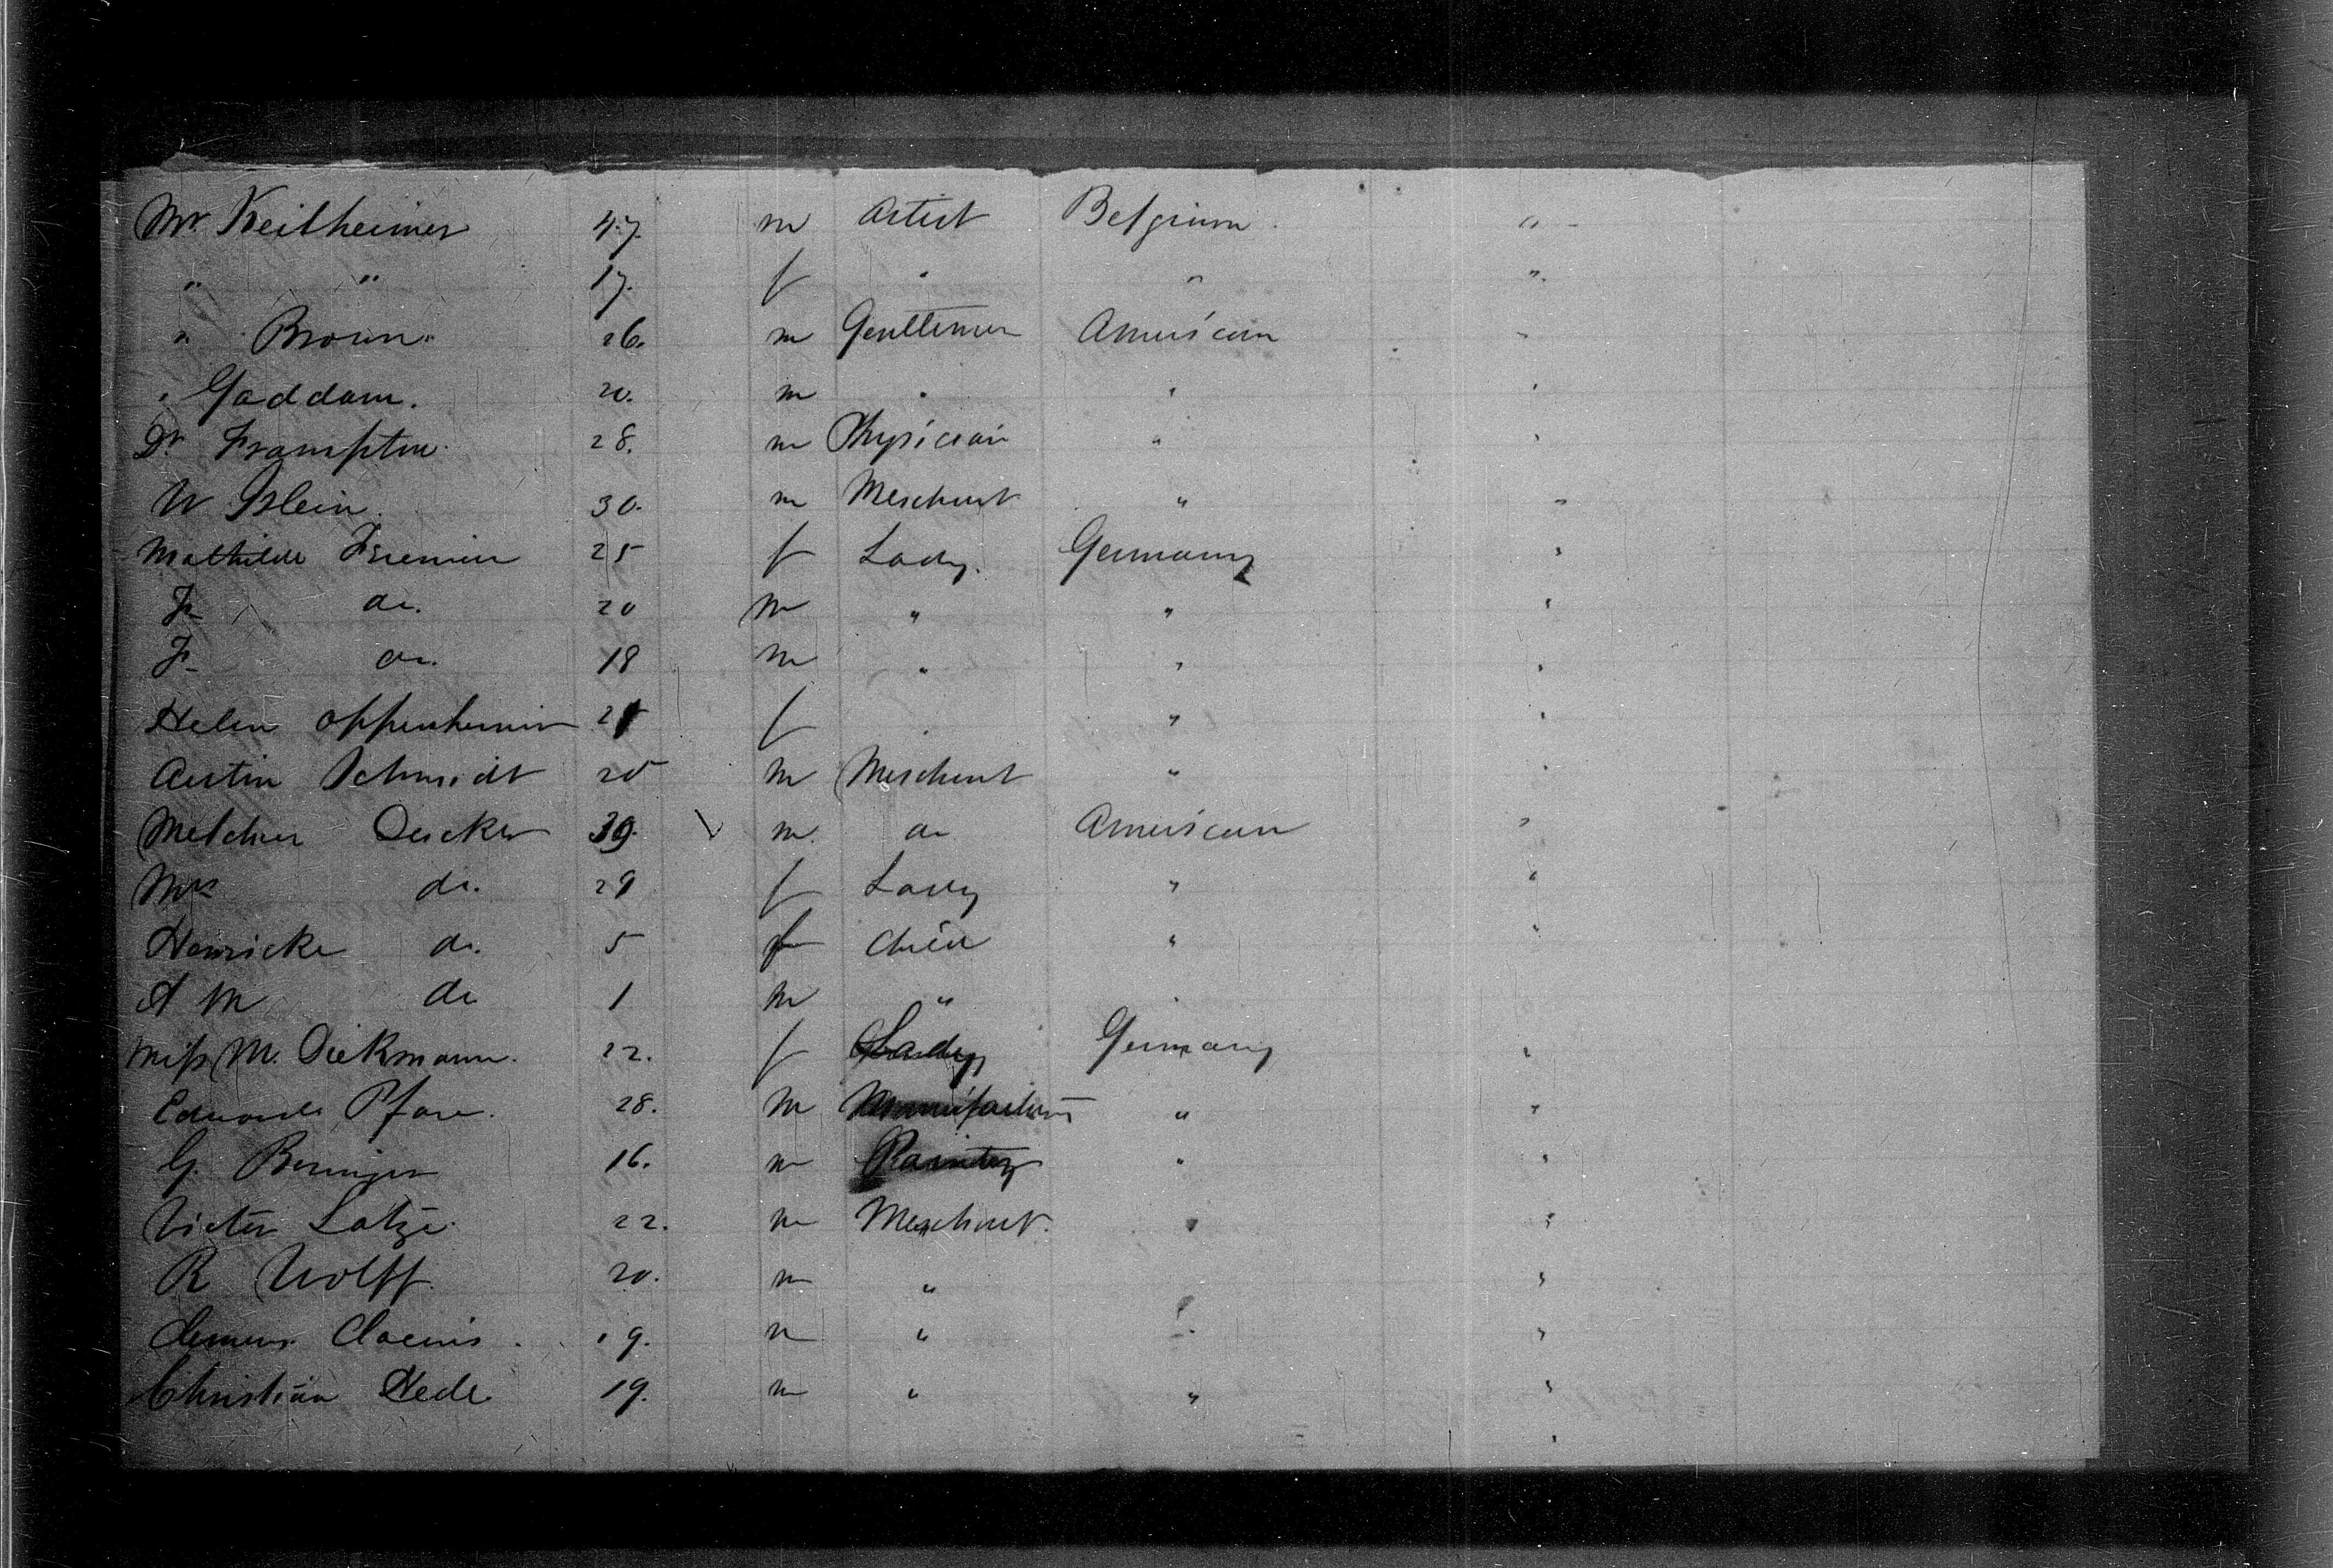 Mr. Keitheimer 47. m Artist Belgium "
" " 17. f " " "
" Broun. 26. m Gentlemen American "
" Gaddam. 20. m " " "
Dr Frampton 28. m Physician " "
W Stein. 30. m Merchant " "
Mathilde 25 f Lady. Germany "
Fr do. 20 m " " "
Fr do. 18 m " " "
Helen Oppenheimer f " " "
Austin Schmidt 20 m Merchant " "
Melcher Deicker 39. m. do American "
Mrs do. 29 f Lady " "
Henricke do. 5 f " "
A M do 1 m " " "
Miss M. Diekmann. 22. f Lady Germany "
Eduard 28. m " "
G. Beringer 16. m " "
Victor Lotze. 22. m Merchant. " "
R Wolff. 20. m " " "
Clemens 19. m " " "
Christian Hede 19. m " " "
"